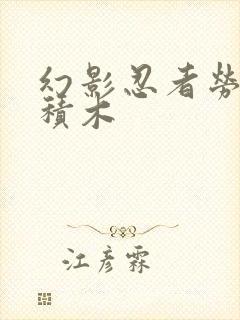 幻影忍者勞
積木
江彦霖